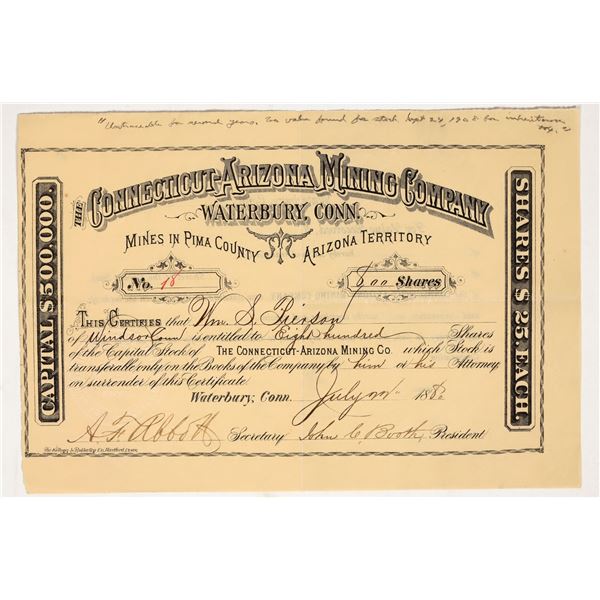 "Untraceable for several years. No value found for stock Sept 24, 1908 for inheritance
THE CONNECTICUT-ARIZONA MINING COMPANY
WATERBURY, CONN.
MINES IN PIMA COUNTY ARIZONA TERRITORY
CAPITAL $500,000.
SHARES $25. EACH.
No. 18 800 Shares
This Certifies that Wm. S. Pierson
of Windsor Conn is entitled to Eight hundred Shares
of the Capital Stock of THE CONNECTICUT-ARIZONA MINING CO. which Stock is
transferable only on the Books of the Company by him or his Attorney
on surrender of this Certificate.
Waterbury, Conn. July 188
A. F. Abbott Secretary John C. Booth, President
The Kellogg & Bulkeley Co. Hartford, Conn.